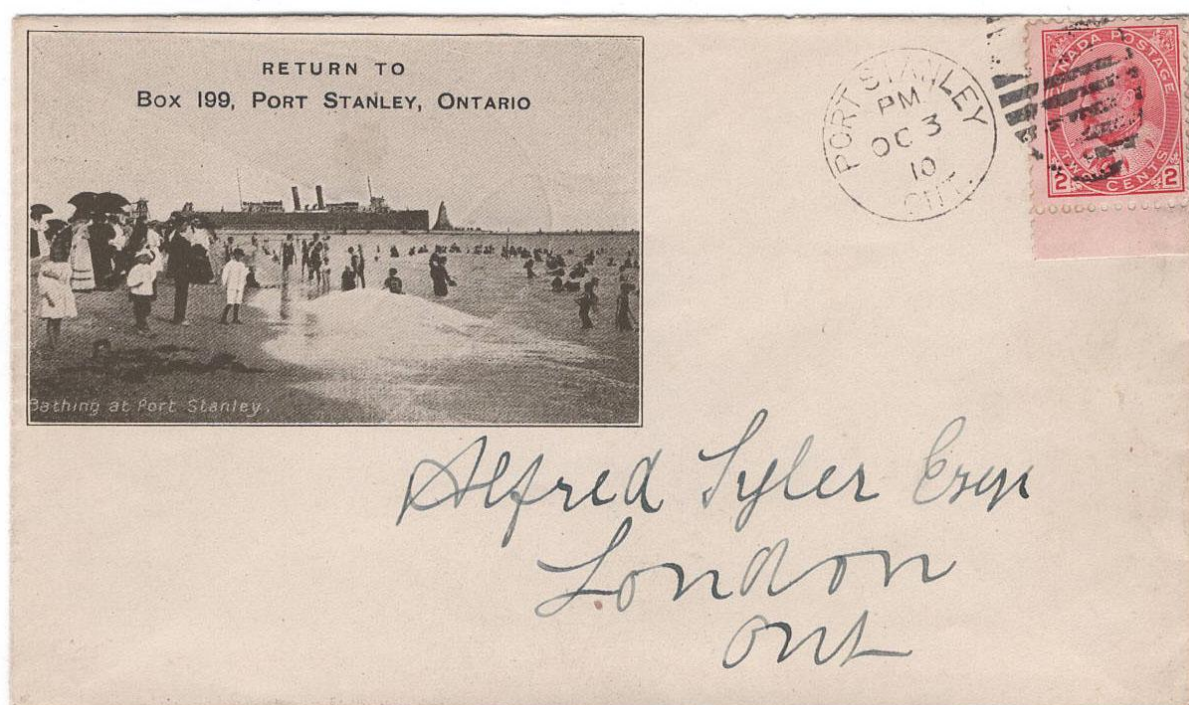 RETURN TO
BOX 199, PORT STANLEY, ONTARIO
Bathing at Port Stanley.
PORT STANLEY
PM
OC 3
10
ONT.
CANADA POSTAGE
2 TWO CENTS 2
Alfred Tyler Esqr
London
Ont